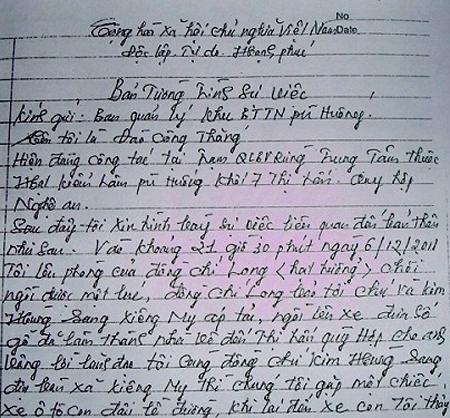 No
Date
Cộng hoà xã hội chủ nghĩa Việt Nam
Độc lập. Tự do. Hạnh phúc
Bản Tường Trình Sự việc
Kính gửi: Ban quản lý khu BTTN pù Huống.
Tên tôi là Đào Công Thắng
Hiện đang công tác tại Trạm QLBV Rừng Trung Tâm thuộc
Hạt kiểm lâm pù Huống khối 7 Thị trấn. Quỳ hợp
Nghệ an.
Sau đây tôi xin trình bày sự việc liên quan đến bản thân
như sau. Vào khoảng 21 giờ 30 phút ngày 6/12/2011
Tôi lên phòng của đồng chí Long <hạt trưởng> chơi
ngồi được một lúc, đồng chí Long bảo tôi chú và kim
Hưng sang xiêng My áp tải, ngồi lên xe đưa số
gỗ để làm thăng nhà về đến thị trấn quỳ Hợp cho anh
bằng lời tôi cùng đồng chí Kim Hưng sang
xã xiêng My thì chúng tôi gặp một chiếc
xe ô tô con đầu tê đường, khi lái đến xe con Tôi thấy